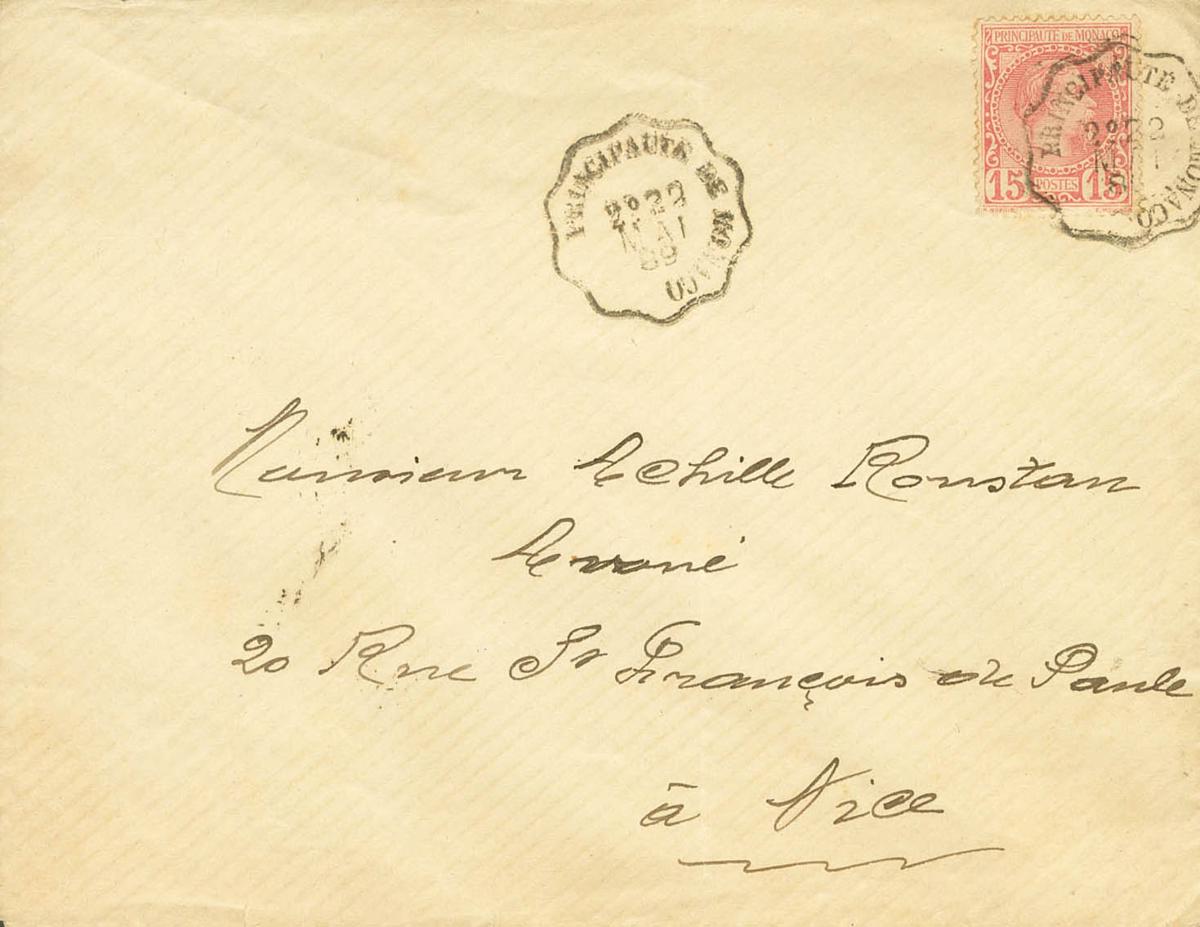 PRINCIPAUTÉ DE MONACO
15 POSTES 15
PRINCIPAUTE DE MONACO
2º 22
MAI
89
PRINCIPAUTE DE MONACO
2º 22
MAI
Monsieur Achille Roustan
Avoué
20 Rue St François de Paule
à Nice